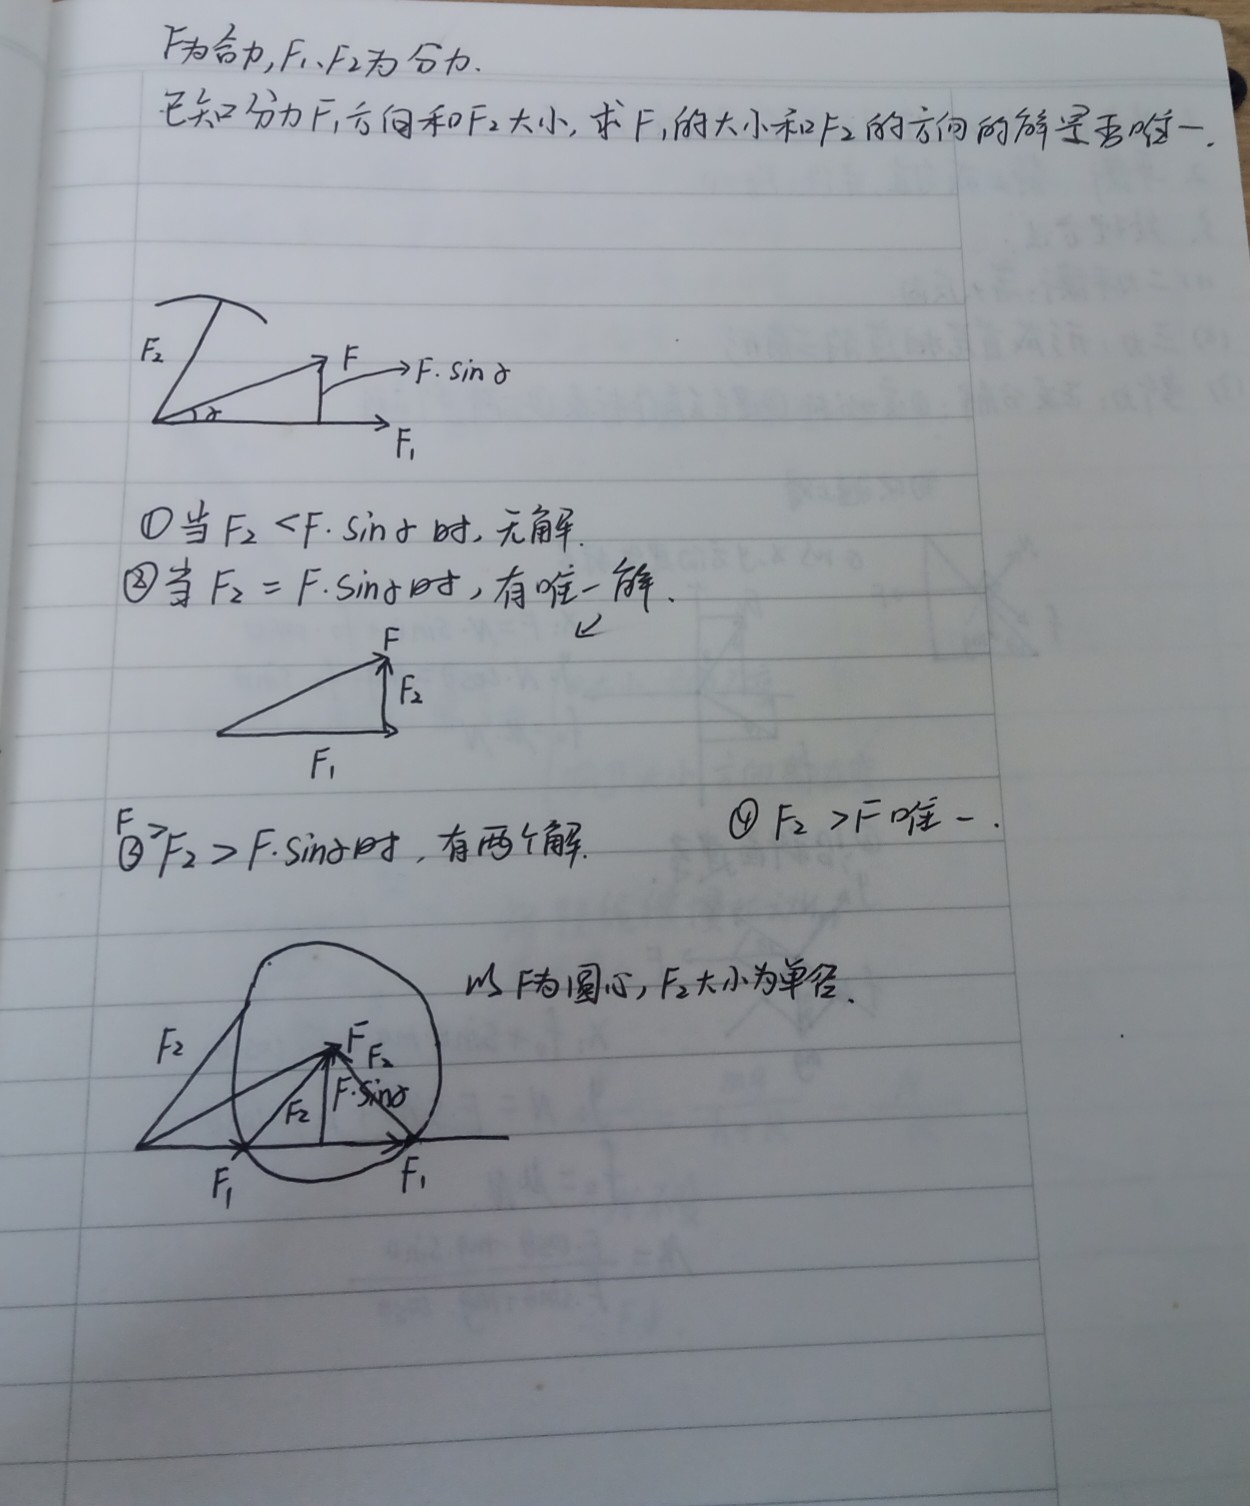 F为合力,F₁、F₂为分力.
已知分力F₁方向和F₂大小,求F₁的大小和F₂的方向的解是否唯一.
F₂
F
F·sinγ
γ
F₁
①当F₂<F·sinγ时,无解.
②当F₂=F·sinγ时,有唯一解.
F
F₂
F₁
③F>F₂>F·sinγ时,有两个解.
④F₂>F唯一.
以F为圆心,F₂大小为半径.
F₂
F
F₂
F₂
F·sinγ
F₁
F₁